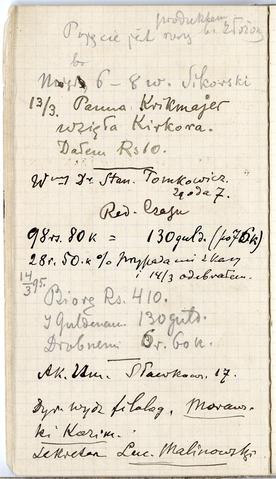 Pojęcie jest
produktem
b. złożon
Mojej 6 – 8 w. Sikorski
13/3. Panna Krikmajer
wzięła Kirkora.
Dałem Rs 10.
Dr. Stan. Tomkowicz
zgoda 7.
Red. Czasu
98 rs. 80 k = 130 guld. (po 76 k)
28 r. 50 k % Przypada mi z kasy
14/3 odebrałem.
14/3 95.
Biorę Rs. 410.
I Guldenami 130 guld.
Drobnemi 6 r. 60 k.
Ak. Um. Sławkows. 17.
Dyr. wydz filolog. Moraws-
ki Kazim.
Sekretarz Luc. Malinowski